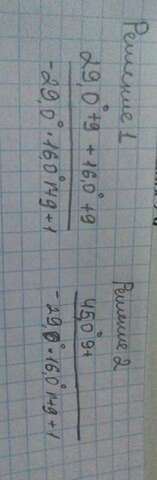 Решение 1
29,0°+g + 16,0°+g
-29,0° · 16,0° 1+g+1
Решение 2
45,0°g+
-29,0° · 16,0° 1+g+1